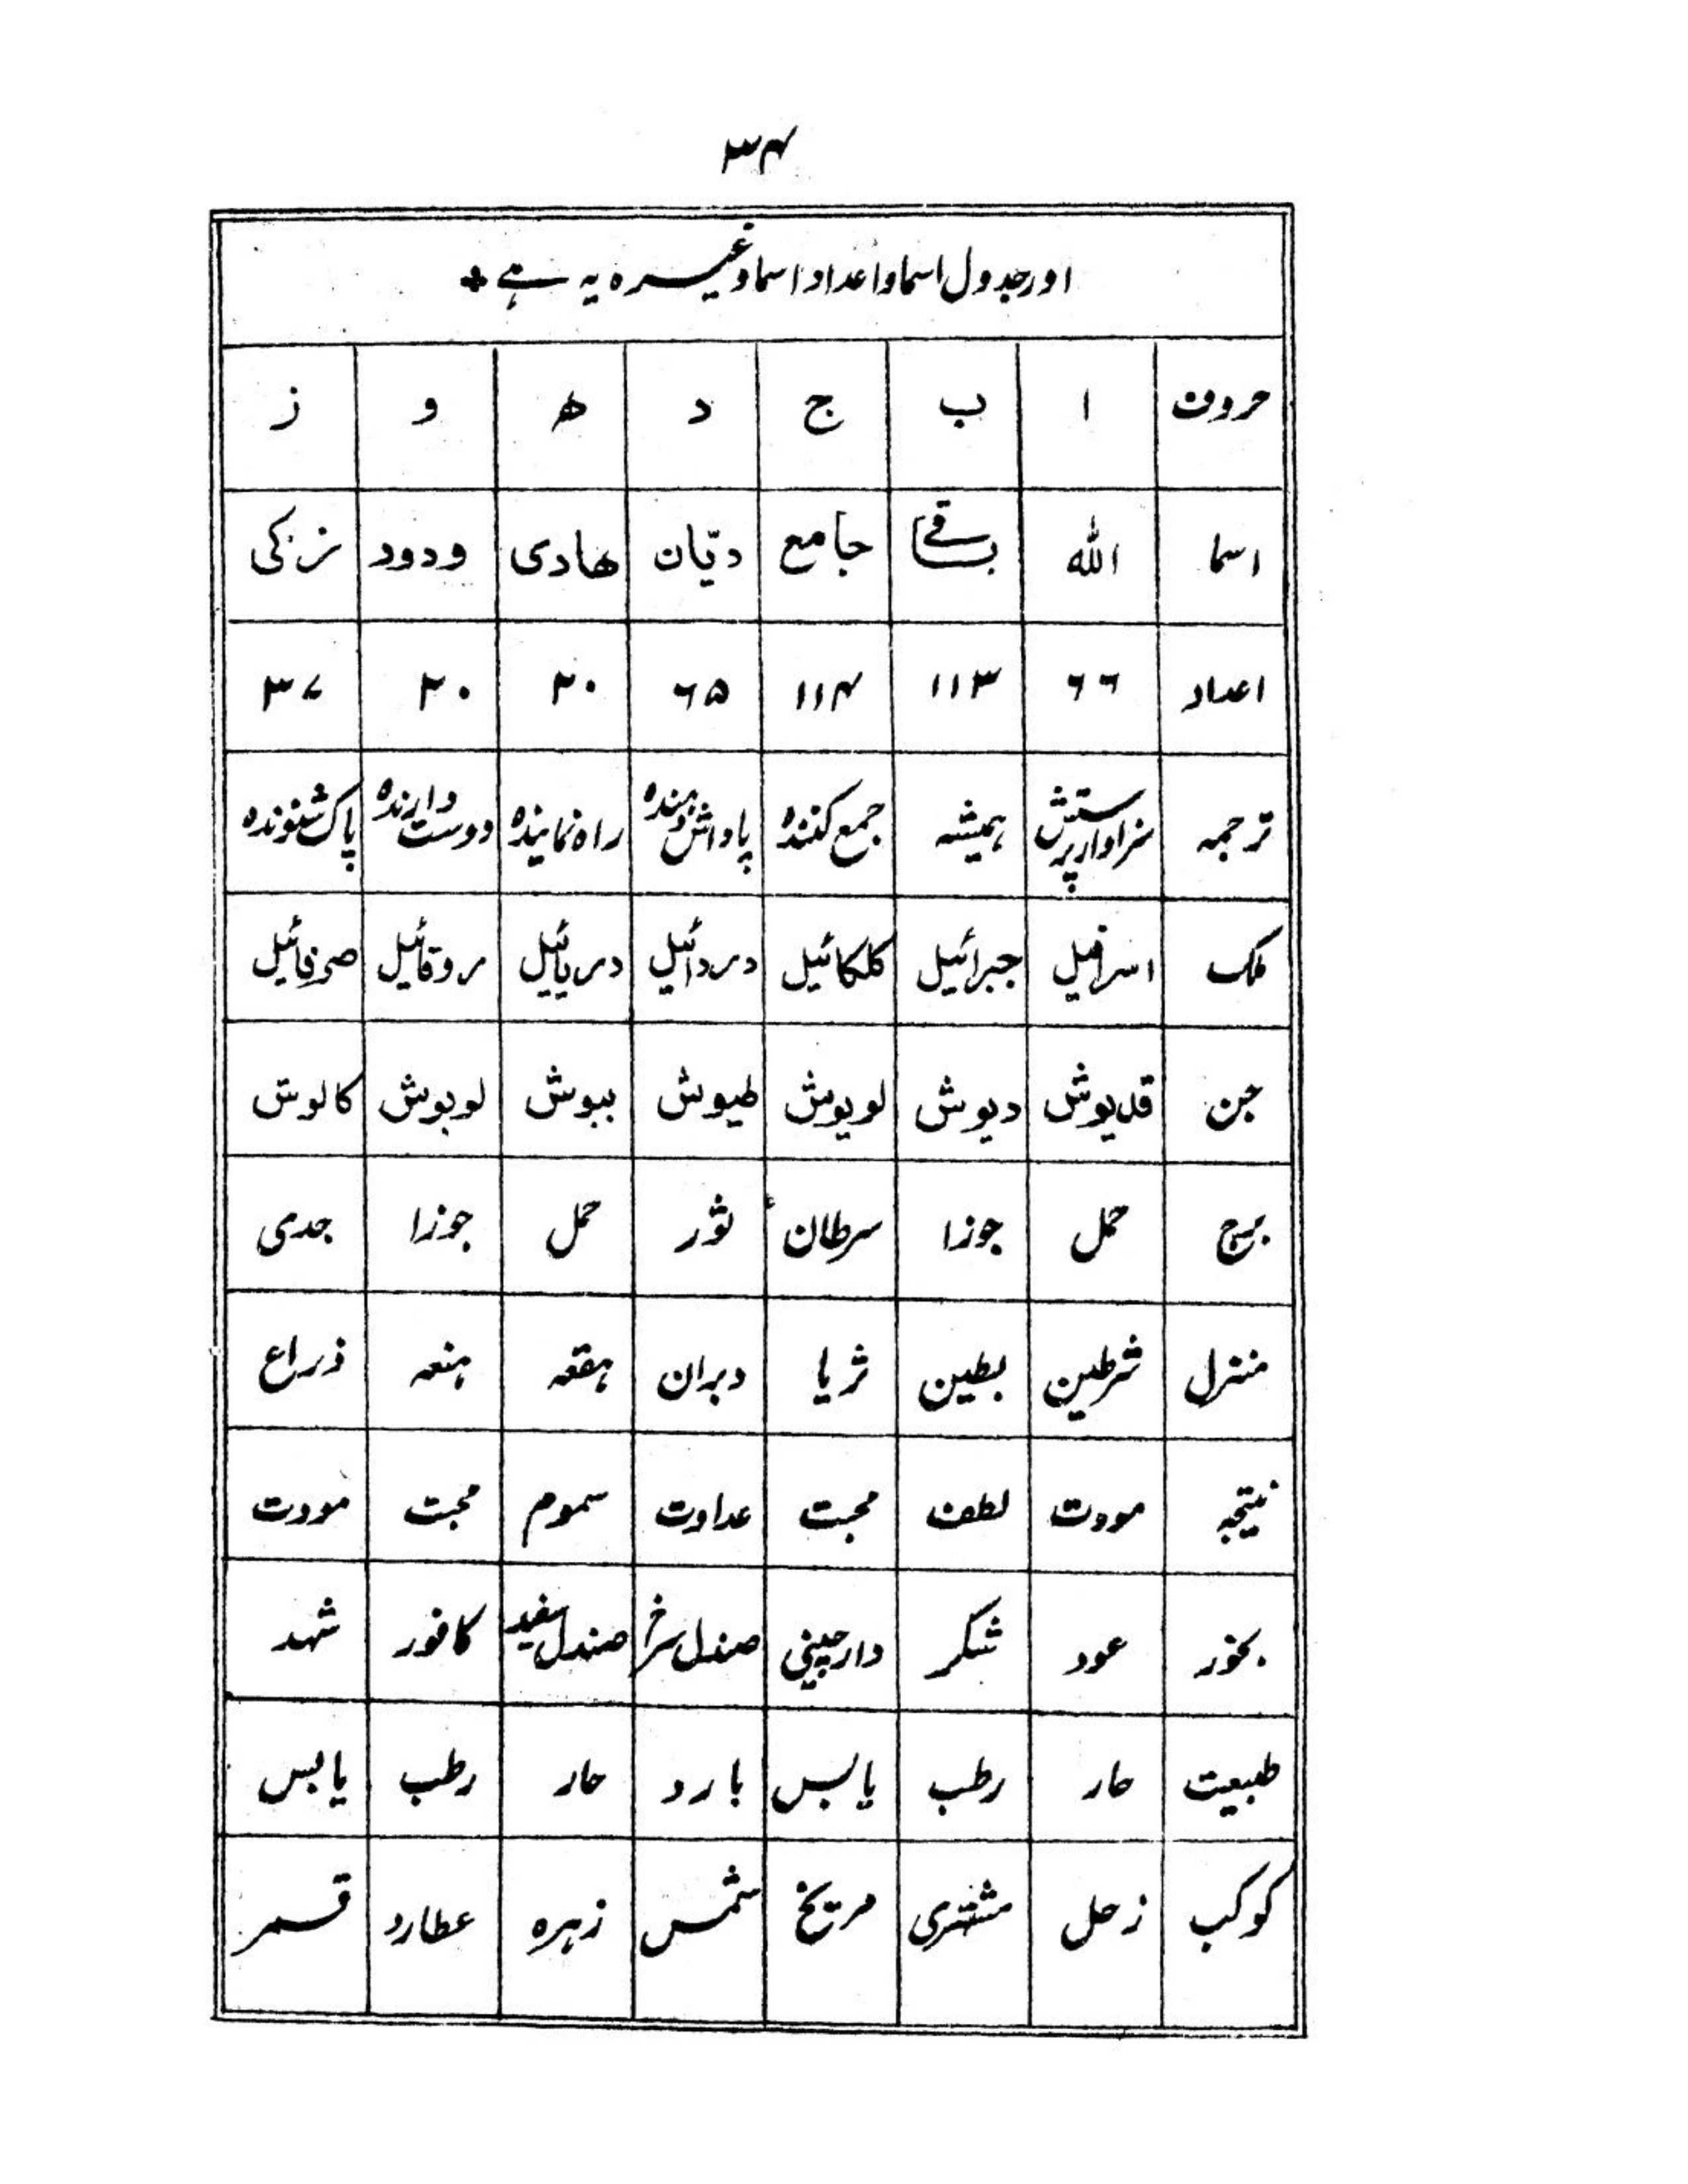 ۳۴
اور جدول اسما و اعداد اسما وغیرہ یہ ہے
حروف ا ب ج د ھ و ز
اسما الله باقے جامع دیّان ھادی ودود زکی
اعداد ۶۶ ۱۱۳ ۱۱۴ ۶۵ ۲۰ ۲۰ ۳۷
ترجمہ سزاوار پرستش ہمیشہ جمع کنندہ پاداش دہندہ راہ نمایندہ دوست دارندہ پاک شنوندہ
ملک اسرافیل جبرائیل کلکائیل دردائیل دریائیل روقائیل صرفائیل
جن قدیوش دیوش لویوش طیوش ببوش لوبوش کالوش
برج حمل جوزا سرطان ثور حمل جوزا جدی
منزل شرطین بطین ثریا دبران ہقعہ ہنعہ ذراع
نتیجہ مودت لطف محبت عداوت سموم محبت مودت
بخور عود شکر دارچینی صندل سرخ صندل سفید کافور شہد
طبیعت حار رطب یابس بارد حار رطب یابس
کوکب زحل مشتری مریخ شمس زہرہ عطارد قمر